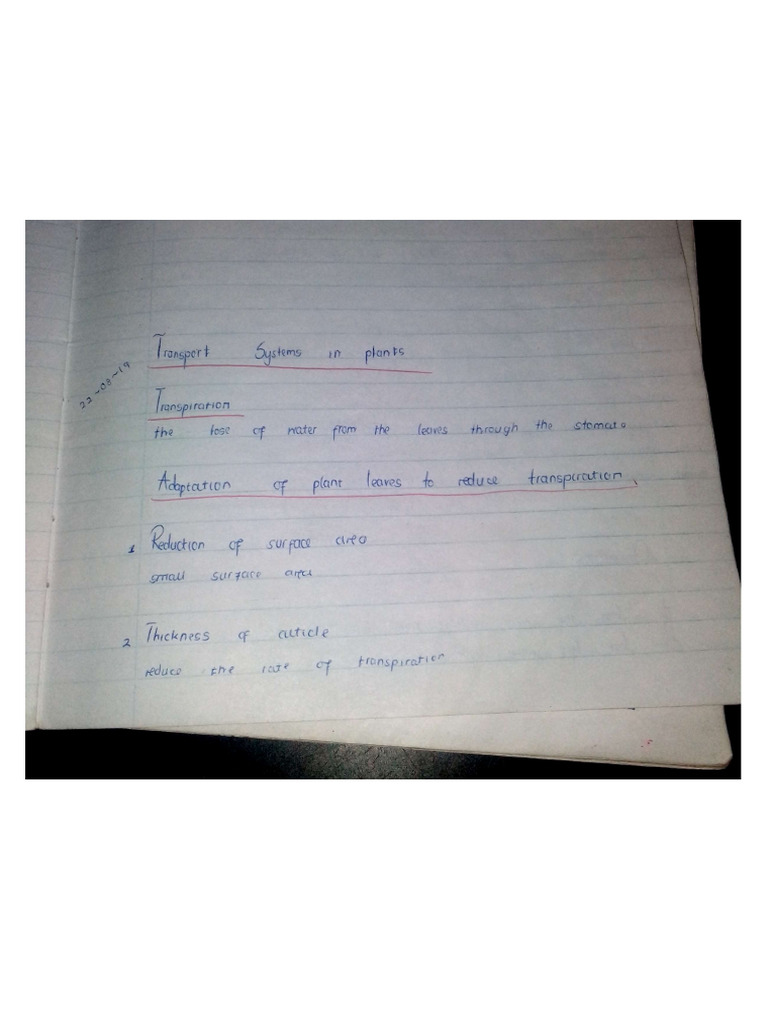 Transport Systems in plants
22-08-19
Transpiration
the lose of water from the leaves through the stomata
Adaptation of plant leaves to reduce transpiration.
1 Reduction of surface area
small surface area
2 Thickness of cuticle
reduce the rate of transpiration